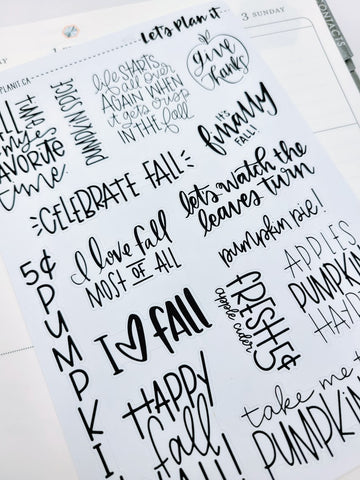 Let's Plan it
3 SUNDAY
PLANIT.CA
give
thanks
life STARTS
all over
AGAIN WHEN
it gets crisp
IN THE fall
PUMPKIN SPICE
FALL
my
FAVORITE
time
IT'S
finally
FALL!
CELEBRATE FALL
let's watch the
leaves turn
I love fall
MOST OF ALL
pumpkin pie!
5¢
PUMPKI
APPLES
PUMPKIN
HAYR
FRESH 5¢
apple cider
I ♥ FALL
HAPPY
fall
Y'ALL!
take me t
PUMPKIN